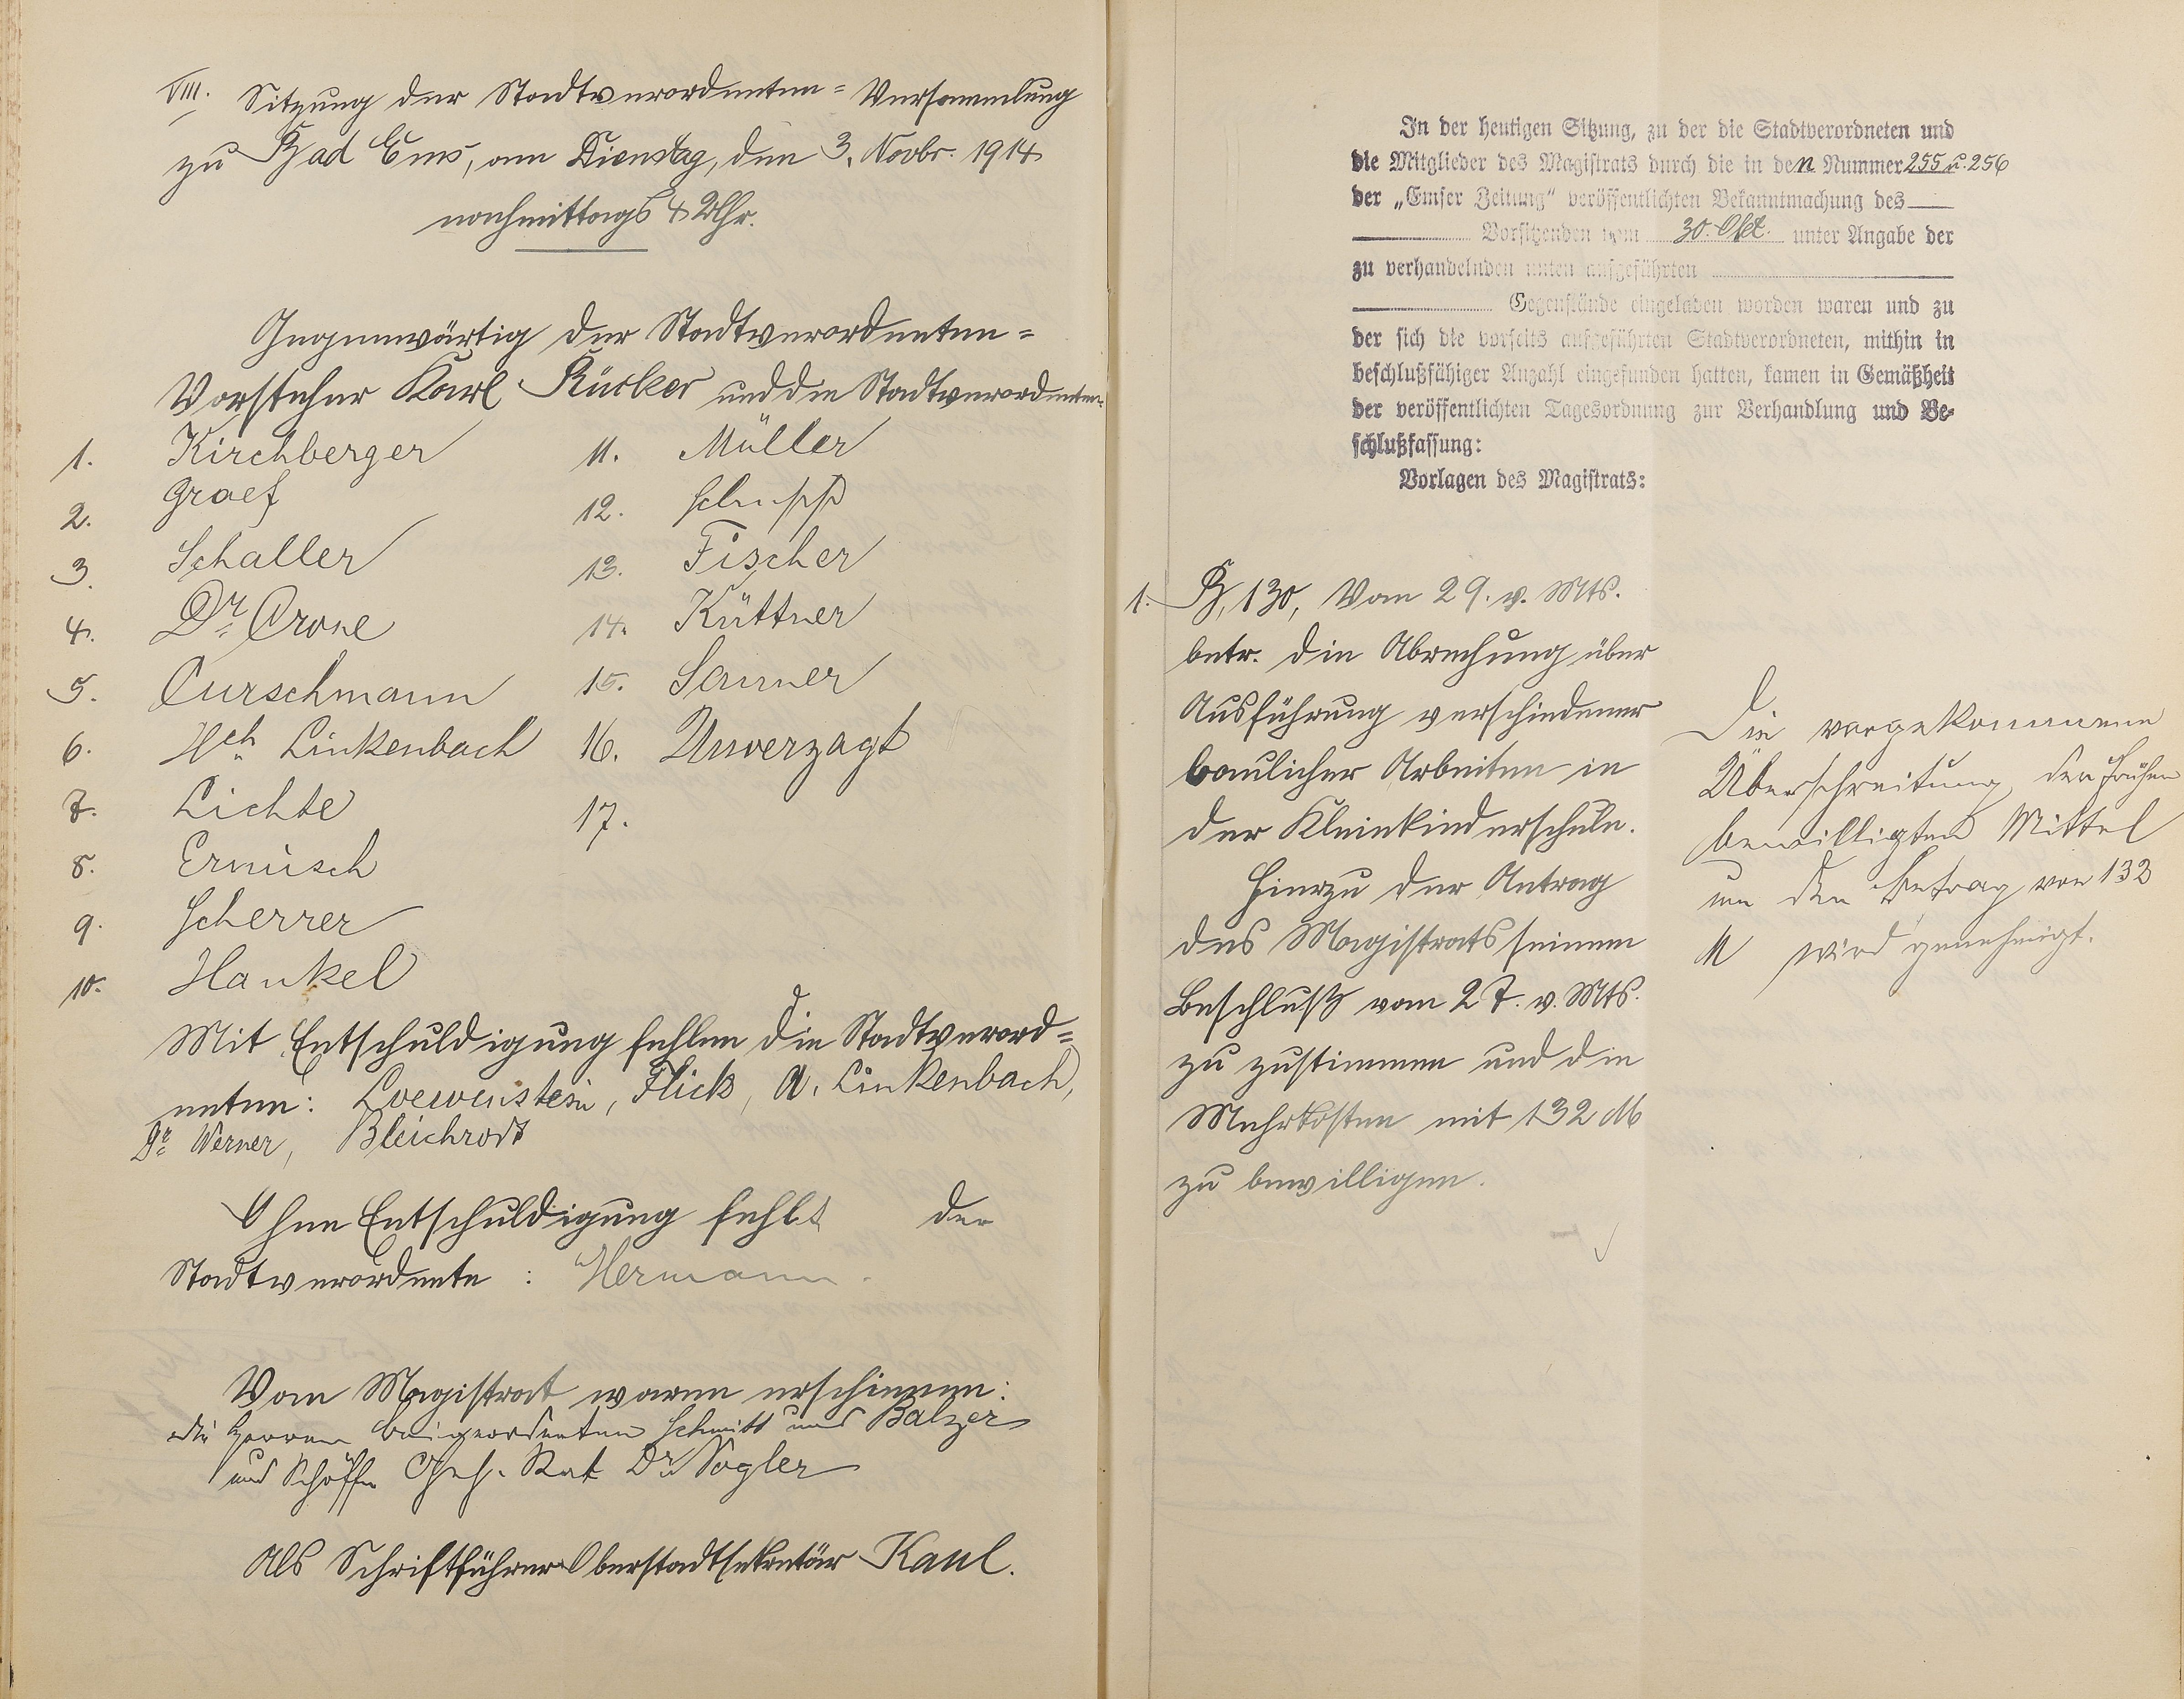 VIII. Sitzung der Stadtverordneten=Versammlung
zu Bad Ems, am Dienstag, den 3. Novbr. 1914
nachmittags 4 Uhr.
Gegenwärtig der Stadtverordneten=
Vorsteher Karl Rücker und die Stadtverordneten:
1. Kirchberger
2. Graef
3. Schaller
4. Dr. Crone
5. Curschmann
6. Hch. Linkenbach
7. Lichte
8. Ermisch
9. Scherrer
10. Hankel
11. Müller
12. Schupp
13. Fischer
14. Küttner
15. Sauner
16. Unverzagt
17.
Mit Entschuldigung fehlen die Stadtverord=
neten: Loewenstein, Flick, A. Linkenbach,
Dr. Werner, Bleichrodt
Ohne Entschuldigung fehlt der
Stadtverordnete: Hermann.
Vom Magistrat waren erschienen:
die Herren Beigeordneten Schmitt und Balzer
und Schöffe Geh. Rat Dr. Vogler
Als Schriftführer Oberstadtsekretär Kaul.
In der heutigen Sitzung, zu der die Stadtverordneten und
die Mitglieder des Magistrats durch die in den Nummer 255 u. 256
der „Emser Zeitung“ veröffentlichten Bekanntmachung des
Vorsitzenden vom 30. Okt. unter Angabe der
zu verhandelnden unten aufgeführten
Gegenstände eingeladen worden waren und zu
der sich die vorseits aufgeführten Stadtverordneten, mithin in
beschlußfähiger Anzahl eingefunden hatten, kamen in Gemäßheit
der veröffentlichten Tagesordnung zur Verhandlung und Be-
schlußfassung:
Vorlagen des Magistrats:
1. B, 130, Vom 29. v. Mts.
betr. die Abrechung über
Ausführung verschiedener
baulicher Arbeiten in
der Kleinkinderschule.
Hierzu der Antrag
des Magistrats seinem
Beschluß vom 27. v. Mts.
zu zustimmen und die
Mehrkosten mit 132 M
zu bewilligen.
Die vorgekommene
Überschreitung der früher
bewilligten Mittel
um den Betrag von 132
M wird genehmigt.